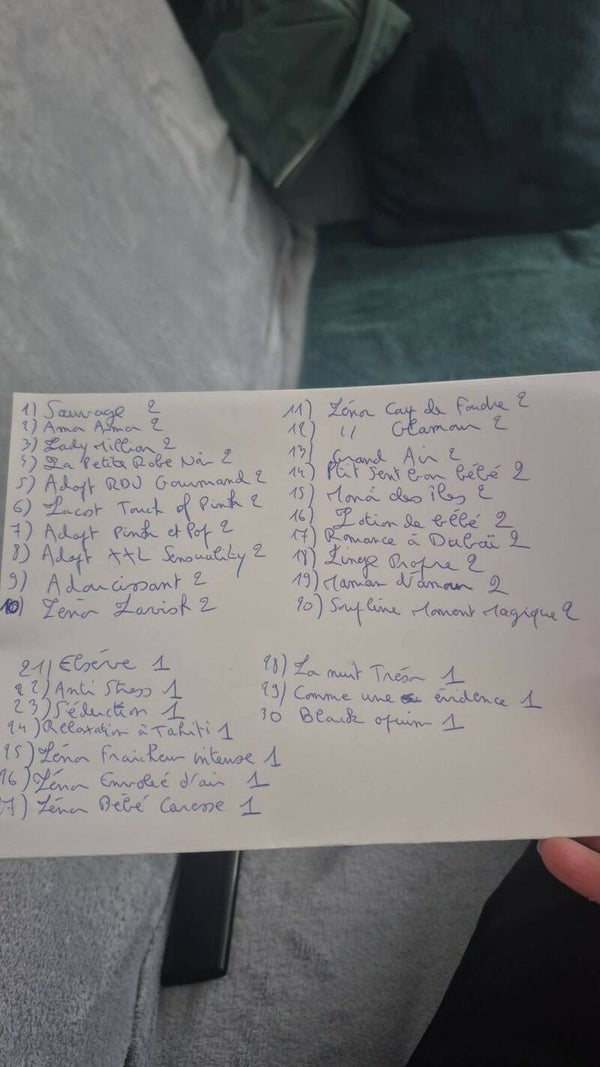 1) Sauvage 2
2) Amor Amor 2
3) Lady Million 2
4) La Petite Robe Noir 2
5) Adopt RDV Gourmand 2
6) Lacost Touch of Pink 2
7) Adopt Pink et Pop 2
8) Adopt XXL Sensuality 2
9) Adoucissant 2
10) Lénor Lavish 2
11) Lénor Coup de Foudre 2
12) " Glamour 2
13) Grand Air 2
14) Ptit Sent bon bébé 2
15) Monoï des îles 2
16) Lotion de bébé 2
17) Romance à Dubaï 2
18) Linge Propre 2
19) Maman d'amour 2
20) Soupline Moment Magique 2
21) Elsève 1
22) Anti Stress 1
23) Séduction 1
24) Relaxation à Tahiti 1
25) Lénor Fraicheur intense 1
26) Lénor Envolée d'air 1
27) Lénor Bébé Caresse 1
28) La nuit Trésor 1
29) Comme une évidence 1
30 Black opium 1